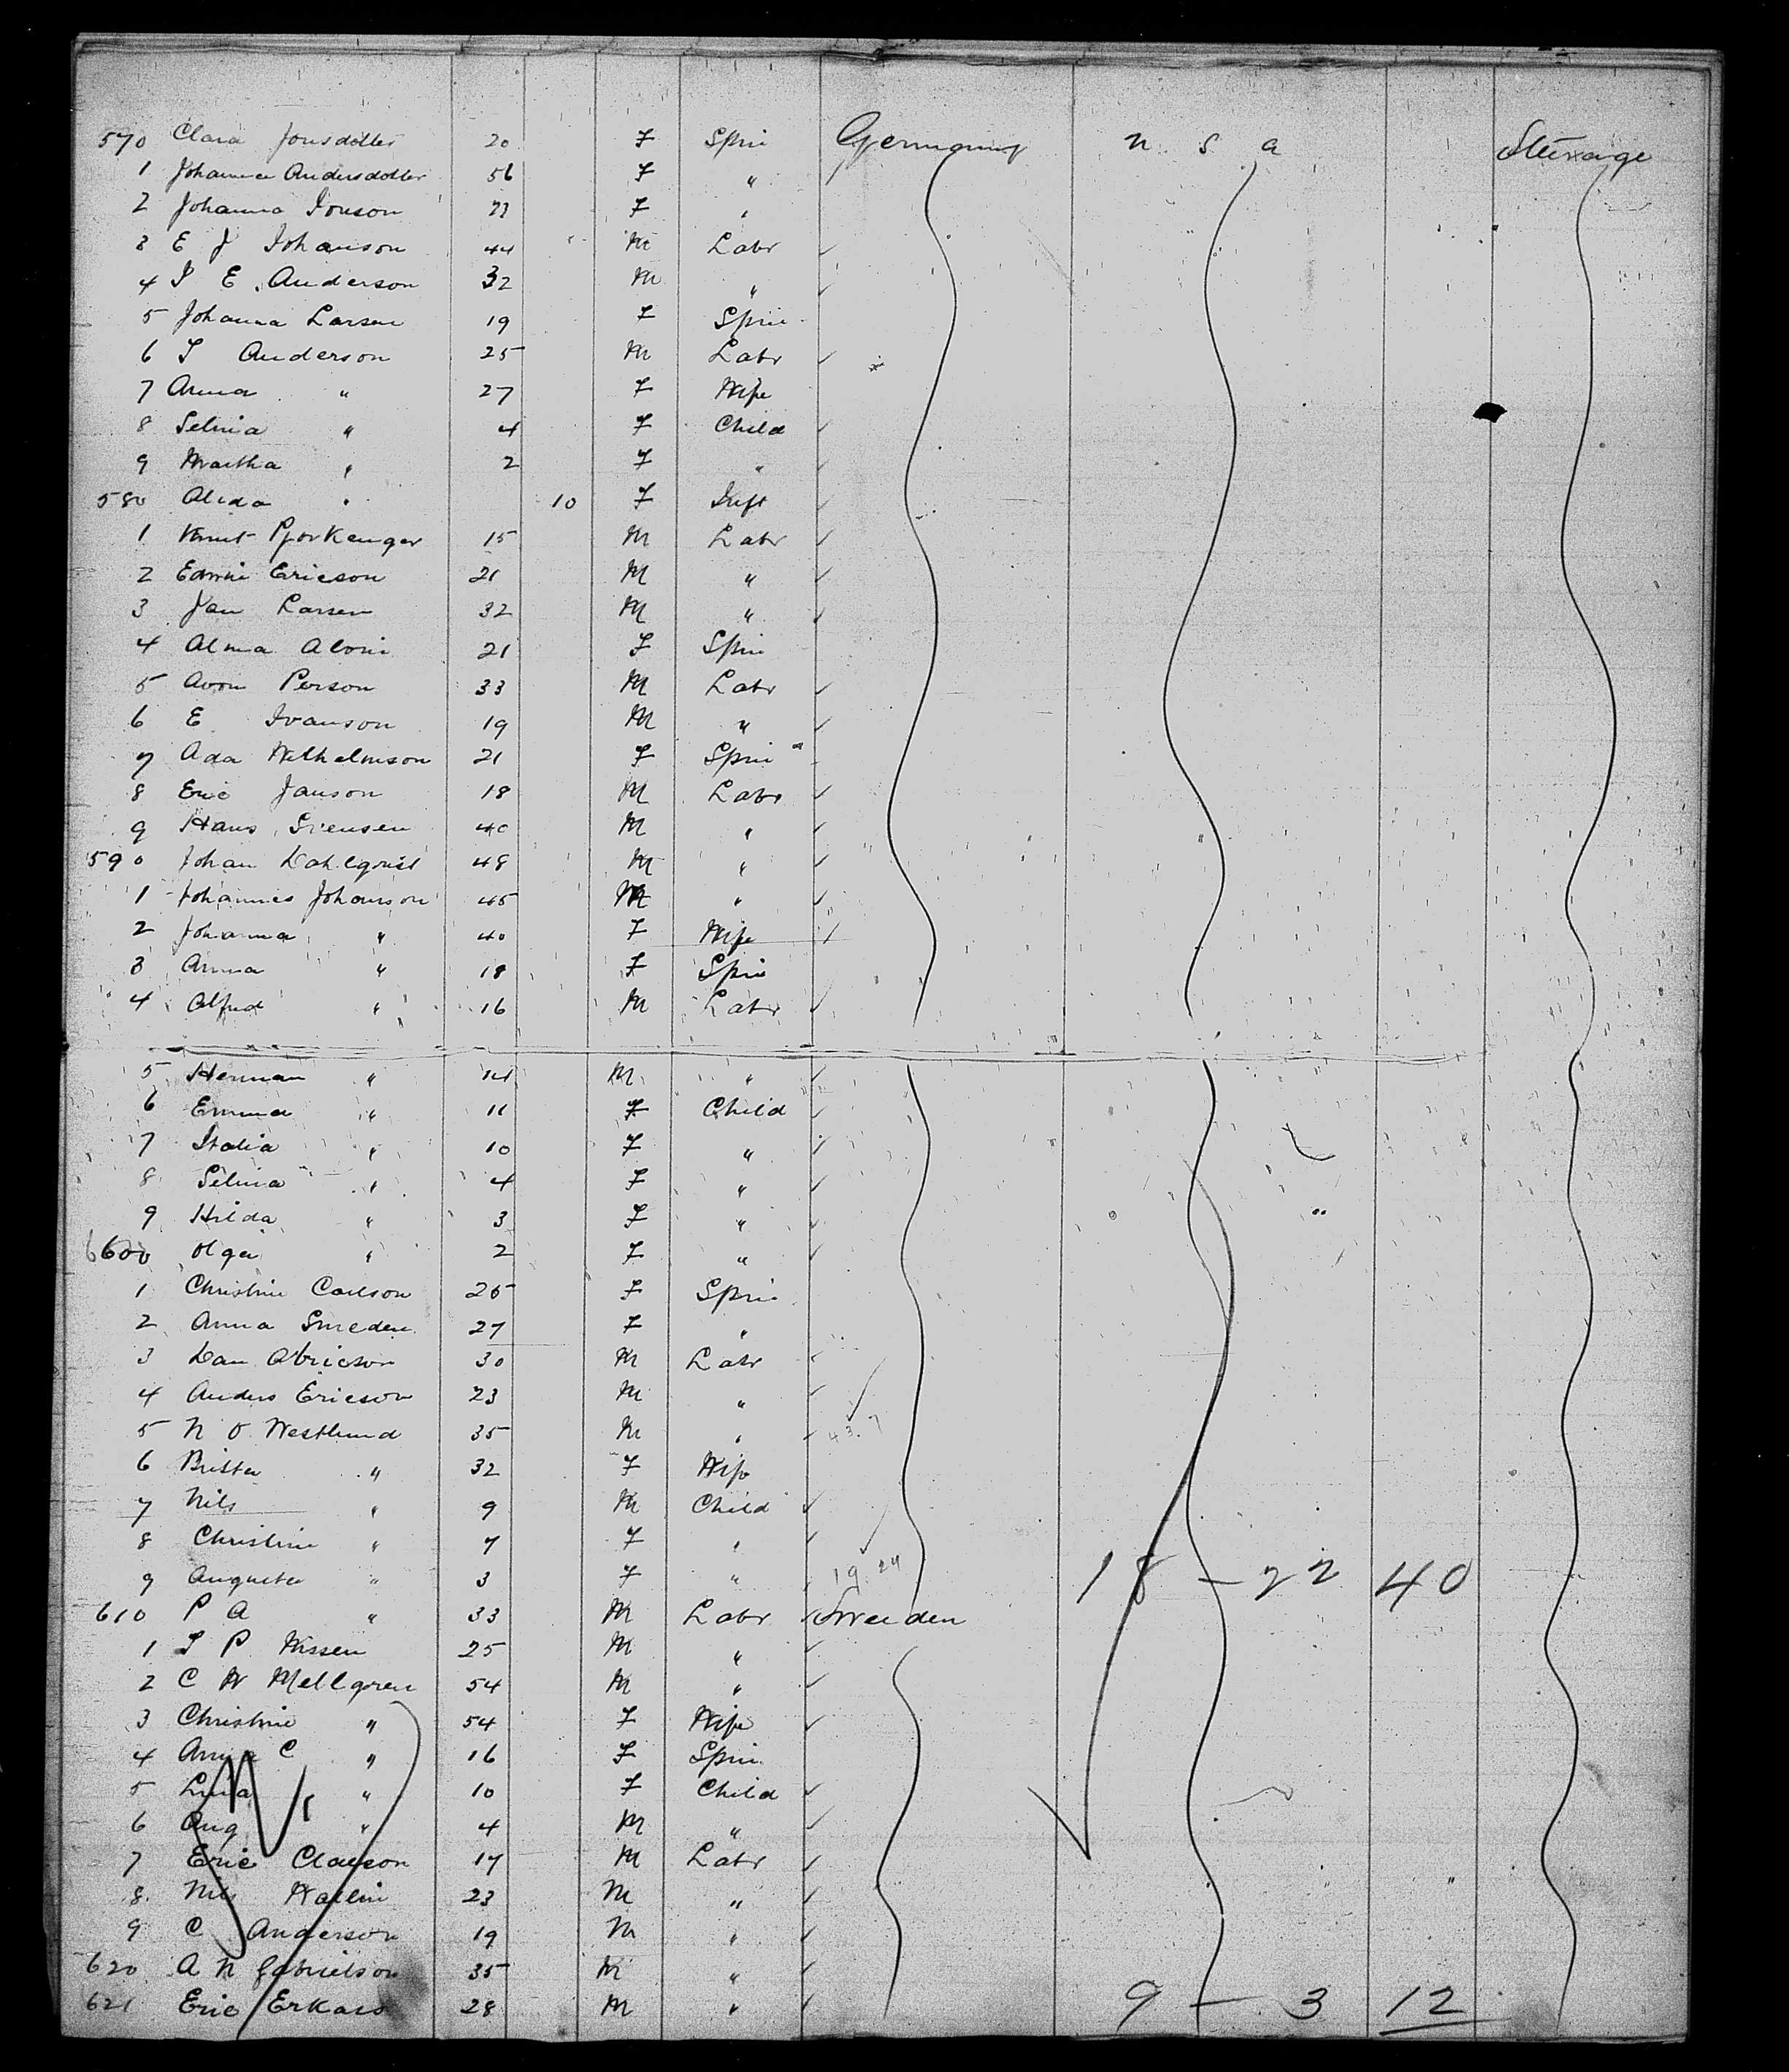 570 Clara Jonsdotter 20 F Spin Germany U S A Steerage
1 Johanna Andersdotter 56 F "
2 Johanna Jonson 23 F "
3 E J Johanson 44 M Labr
4 J E Anderson 32 M "
5 Johanna Larsen 19 F Spin
6 J Anderson 25 M Labr
7 Anna " 27 F Wife
8 Selma " 4 F Child
9 Martha " 2 F "
580 Alida " 10 F Inft
1 Knut 15 M Labr
2 Edwin Ericson 21 M "
3 Jan Larsen 32 M "
4 Alma 21 F Spin
5 Person 33 M Labr
6 E Ivanson 19 M "
7 Ada Wilhelmson 21 F Spin
8 Eric Janson 18 M Labr
9 Hans Svensen 40 M "
590 Johan Dahlqvist 48 M "
1 Johannes Johanson 45 M "
2 Johanna " 40 F Wife
3 Anna " 18 F Spin
4 Alfred " 16 M Labr
5 Herman " 14 M "
6 Emma " 11 F Child
7 " 10 F "
8 Selma " 4 F "
9 Hilda " 3 F "
6600 Olga " 2 F "
1 Christine Carlson 25 F Spin
2 Anna Smeden 27 F "
3 30 M Labr
4 Anders Ericson 23 M "
5 N O Westlund 35 M " 43.7
6 Britta " 32 F Wife
7 Nils " 9 M Child
8 Christine " 7 F "
9 Augusta " 3 F " 19 24 18 – 22 40
610 P A " 33 M Labr Sweeden
1 J P Nissen 25 M "
2 C W Mellgren 54 M "
3 Christine " 54 F Wife
4 Anna C " 16 F Spin
5 " 10 F Child
6 Aug " 4 M "
7 Eric Clauson 17 M Labr
8 Nils Wallin 23 M "
9 C Anderson 19 M "
620 A N Gabrielson 35 M "
621 Eric 28 M " 9 – 3 12